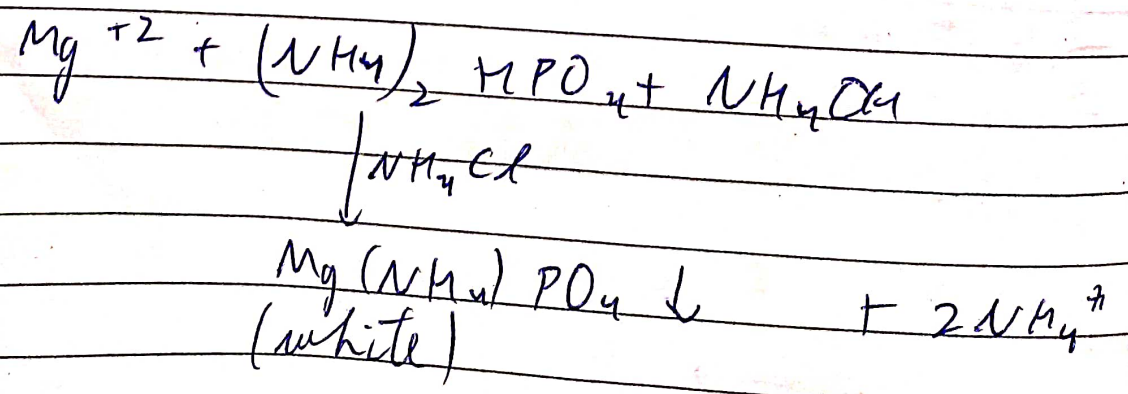 Mg +2 + (NH4)2 HPO4 + NH4OH
↓ NH4Cl
Mg(NH4) PO4 ↓ + 2NH4+
(white)